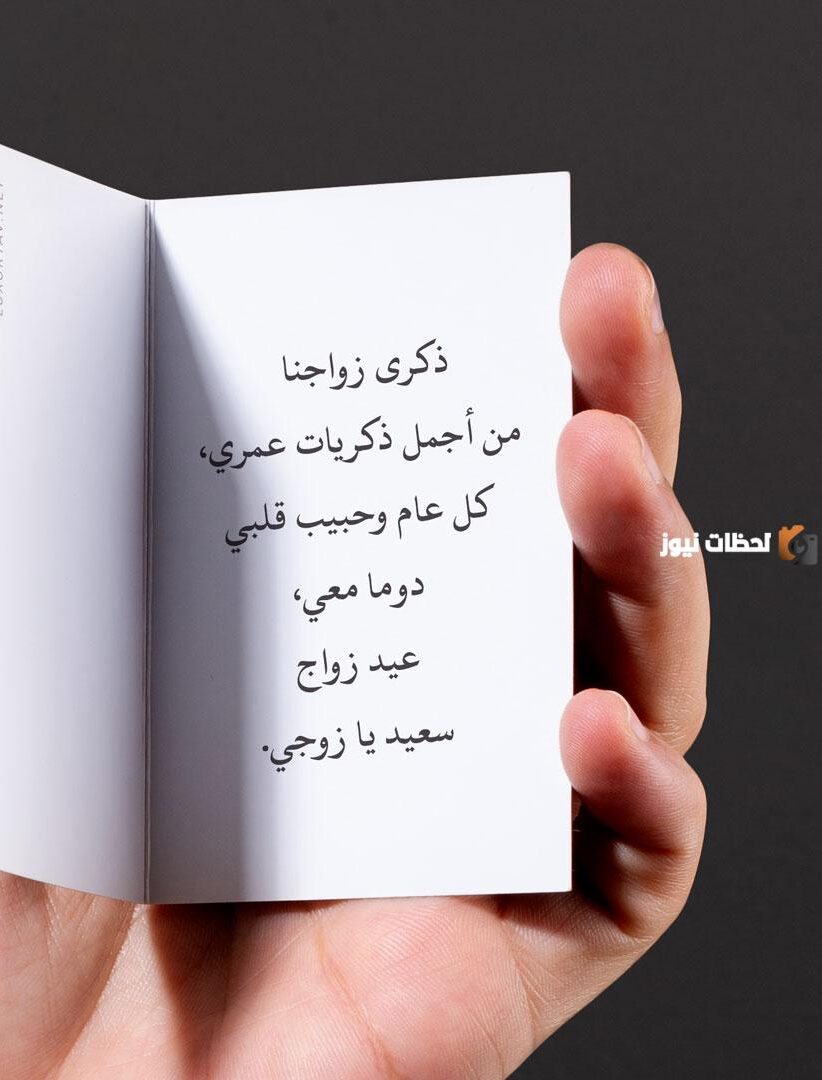 ذكرى زواجنا
من أجمل ذكريات عمري،
كل عام وحبيب قلبي
دوما معي،
عيد زواج
سعيد يا زوجي.
لحظات نيوز